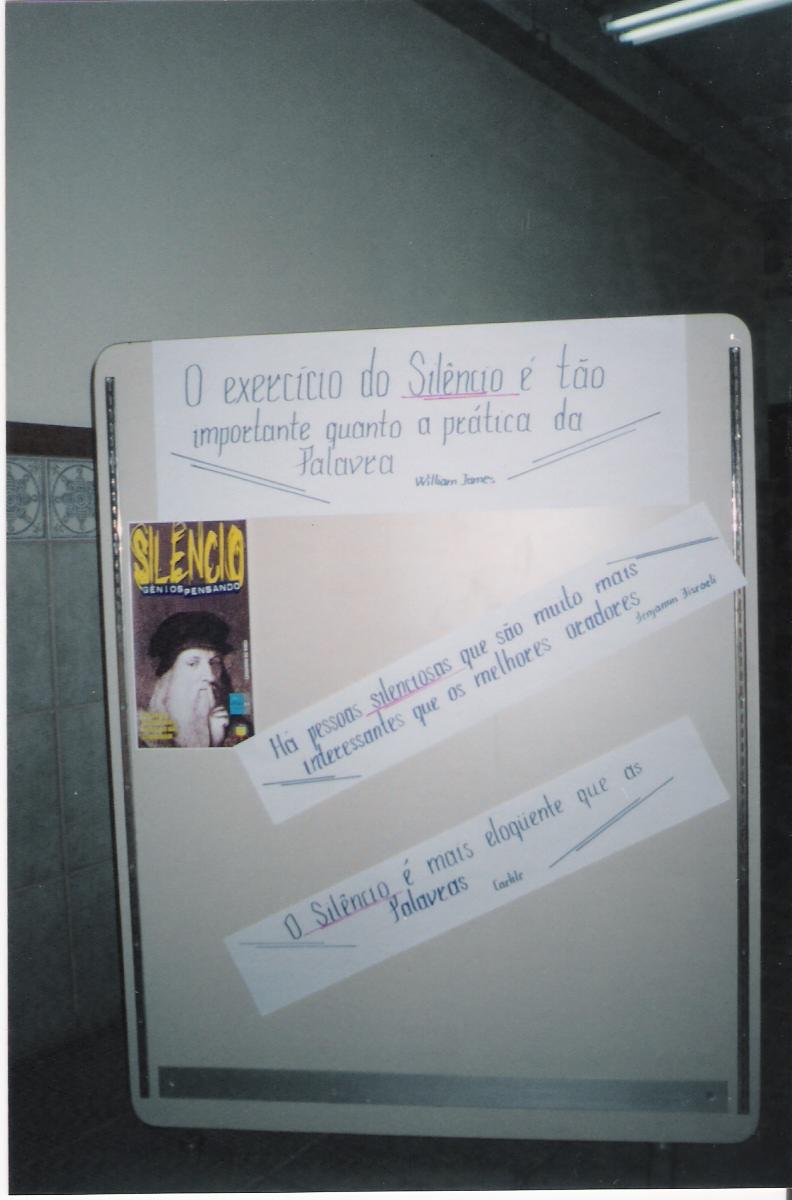 O exercício do Silêncio é tão
importante quanto a prática da
Palavra
William James
SILÊNCIO
GÊNIOS PENSANDO
Há pessoas silenciosas que são muito mais
interessantes que os melhores oradores
Benjamin Disraeli
O Silêncio é mais eloqüente que as
Palavras